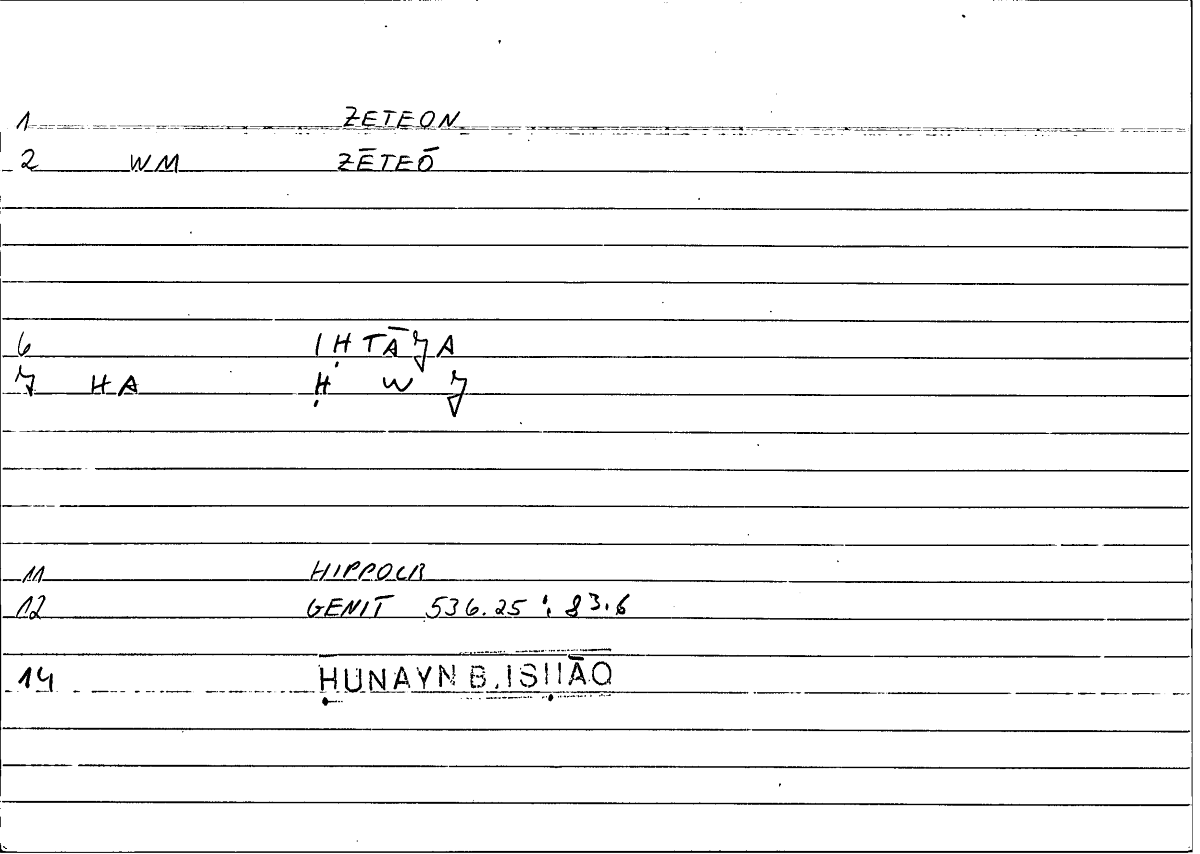 1 ZETEON
2 WM ZĒTEŌ
6 IḤTĀJA
7 HA Ḥ W J
11 HIPPOCR
12 GENIT 536.25 : 83.6
14 ḤUNAYN B. ISḤĀQ